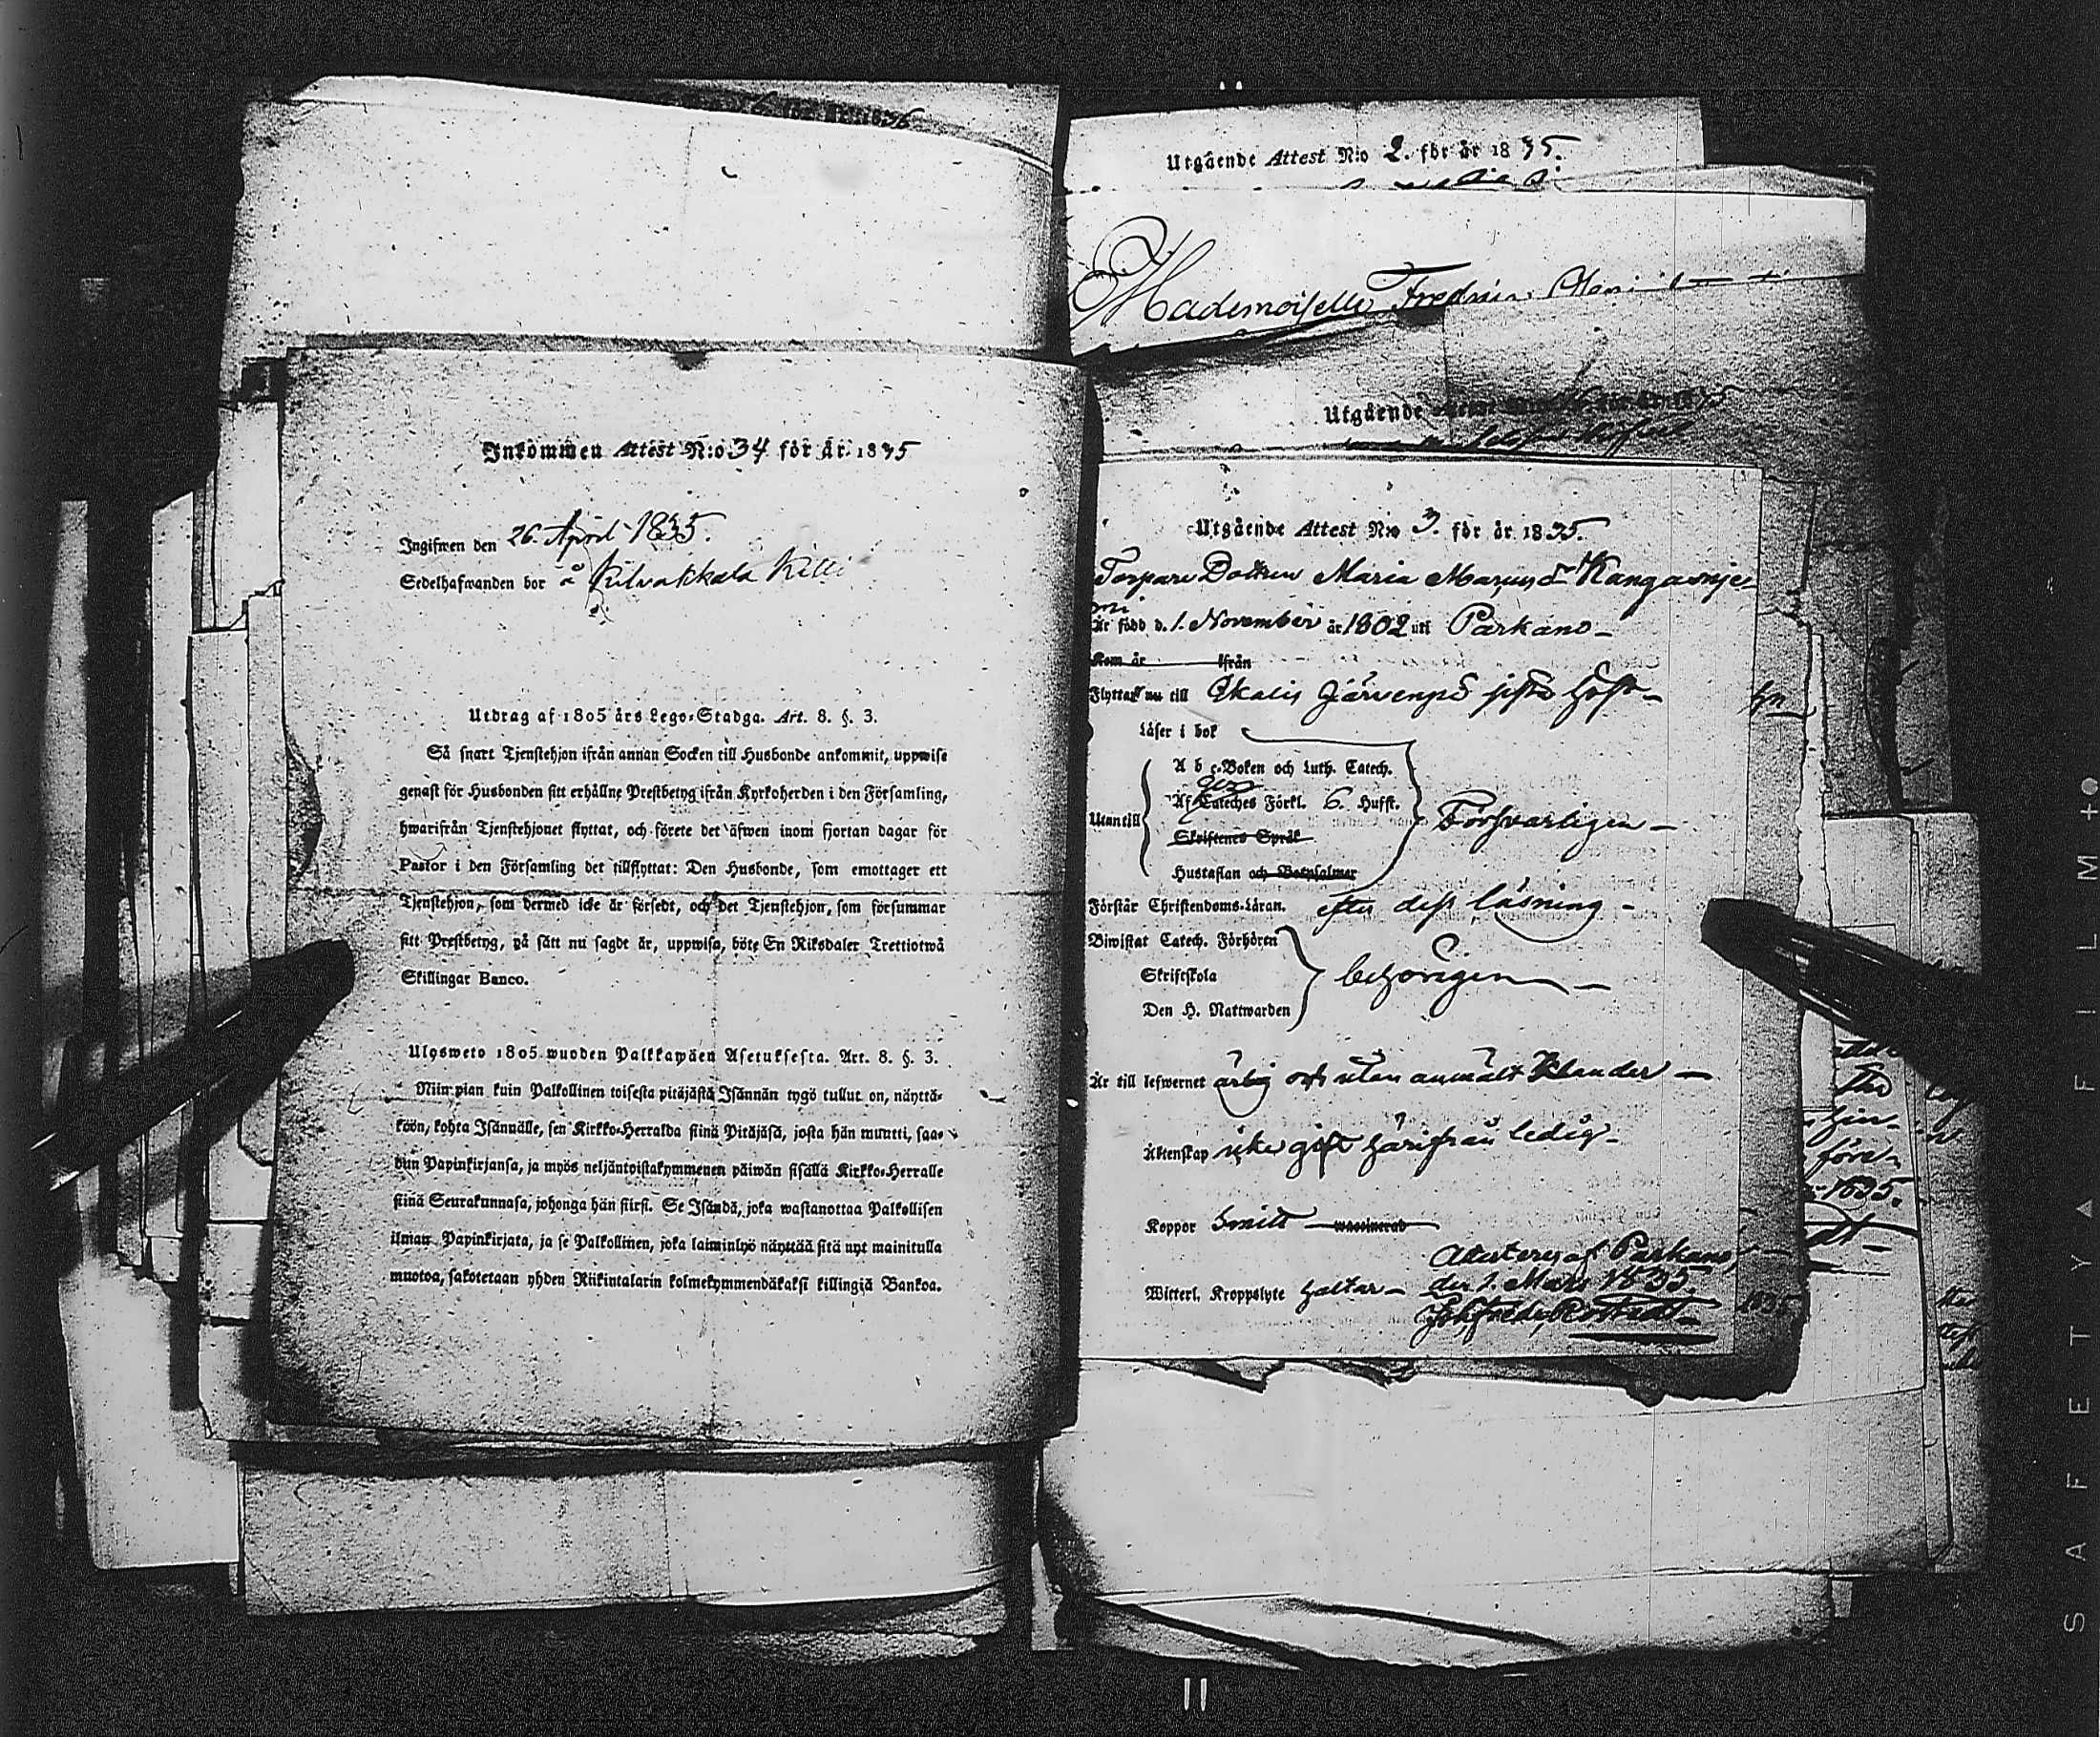 för år 1836
Inkommen Attest N:o 34 för år 1835
Ingifwen den 26. April 1835.
Sedelhafwanden bor å Kilvakkala Killi
Utdrag af 1805 års Lego-Stadga. Art. 8. §. 3.
Så snart Tjenstehjon ifrån annan Socken till Husbonde ankommit, uppwise
genast för Husbonden sitt erhållne Prestbetyg ifrån Kyrkoherden i den Församling,
hwarifrån Tjenstehjonet flyttat, och förete det äfwen inom fjortan dagar för
Pastor i den Församling det tillflyttat: Den Husbonde, som emottager ett
Tjenstehjon, som dermed icke är försedt, och det Tjenstehjon, som försummar
sitt Prestbetyg, på sätt nu sagdt är, uppwisa, böte En Riksdaler Trettiotwå
Skillingar Banco.
Ulosweto 1805 wuoden Palkkapäen Asetuksesta. Art. 8. §. 3.
Niin pian kuin Palkollinen toisesta pitäjästä Isännän tygö tullut on, näyttä-
köön, kohta Isännälle, sen Kirkko-Herralda siinä Pitäjäsä, josta hän muutti, saa-
dun Papinkirjansa, ja myös neljäntoistakymmenen päiwän sisällä Kirkko-Herralle
siinä Seurakunnasa, johonga hän siirsi. Se Isändä, joka wastanottaa Palkollisen
ilman Papinkirjata, ja se Palkollinen, joka laiminlyö näyttää sitä nyt mainitulla
muotoa, sakotetaan yhden Riikintalarin kolmekymmendäkaksi killingiä Bankoa.
Utgående Attest N:o 2. för år 1835.
Mademoiselle
Utgående
Utgående Attest N:o 3. för år 1835.
Torpare Dottren Maria Kangasnie
mi
Är född d. 1. November år 1802 uti Parkano
Kom år ifrån
Flyttar nu till Ikalis Järvenpä
Läser i bok
A b c-Boken och Luth. Catech.
Utantill
Af Cateches Förkl. 6. Hufst.
Skriftenes Språk
Hustaflan och Botpsalmer
Försvarligen
Förstår Christendoms-Läran. efter dess läsning
Biwistat Catech. Förhören
Skriftskola
Den H. Nattwarden
behörigen
Är till lefwernet ärlig och utan anmält klander
Äktenskap icke gift härifrån ledig
Koppor smitt waccinerad
Attesteras af Parkano
den 1. Mars 1835.
Witterl. Kroppslyte haltar
1835.
S A F E T Y ▲ F I L M